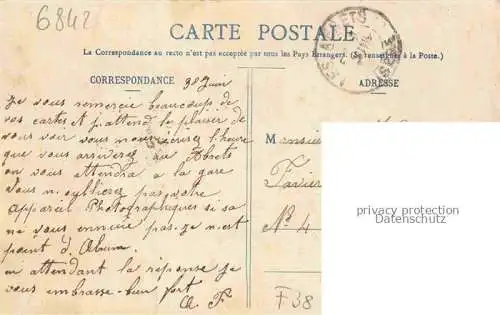 6842
CARTE POSTALE
La Correspondance au recto n'est pas acceptée par tous les Pays Etrangers. (Se renseigner à la Poste.)
CORRESPONDANCE
ADRESSE
30 Juin
Je vous remercie beaucoup de
vos cartes et j'attend le plaisir de
vous voir vous nous l'heure
que vous arriverez au Abrets
on vous attendra a la gare
Vous n'oublierez pas votre
Appareil Photographique si sa
ne vous ennuie pas je n'est
point d'Album
en attendant la réponse je
vous embrasse bien fort
A. F
Monsieur
Favier
N° 4
privacy protection
Datenschutz
F38
LES ABRETS